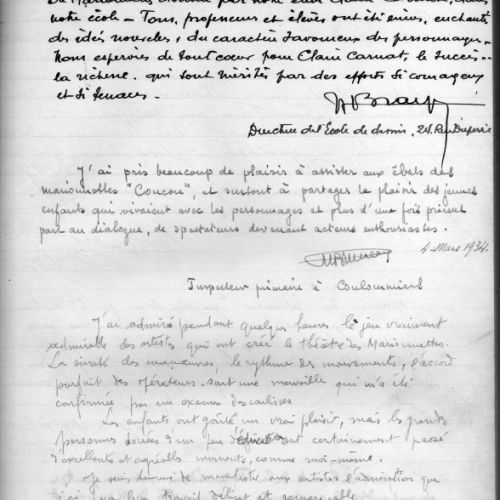 de Marionnettes donnée par notre ami Clair Carnat, dans
notre école - Tous, professeurs et élèves ont été émus, enchantés
des idées nouvelles, du caractère savoureux des personnages -
Nous espérons de tout cœur pour Clair Carnat, le succès -
la richesse. qui sont mérités par des efforts si courageux
et si tenaces -
Directrice de l'Ecole de dessin, 24, Rue Duperré
J'ai pris beaucoup de plaisir à assister aux ébats des
marionnettes "Coucou", et surtout à partager le plaisir des jeunes
enfants qui vivaient avec les personnages et plus d'une fois prirent
part au dialogue, de spectateurs devenant acteurs enthousiastes.
4 Mars 1934.
Inspecteur primaire à Coulommiers
J'ai admiré pendant quelques heures le jeu vraiment
admirable des artistes qui ont créé le théâtre des Marionnettes.
La sûreté des manœuvres, le rythme des mouvements, l'accord
parfait des opérateurs sont une merveille qui m'a été
confirmée par un examen des coulisses
Les enfants ont goûté un vrai plaisir, mais les grandes
personnes douées d'un peu d' ont certainement passé
d'excellents et agréables moments, comme moi-même.
Je suis heureux de manifester aux artistes l'admiration que
j'ai leur travail délicat et remarquable